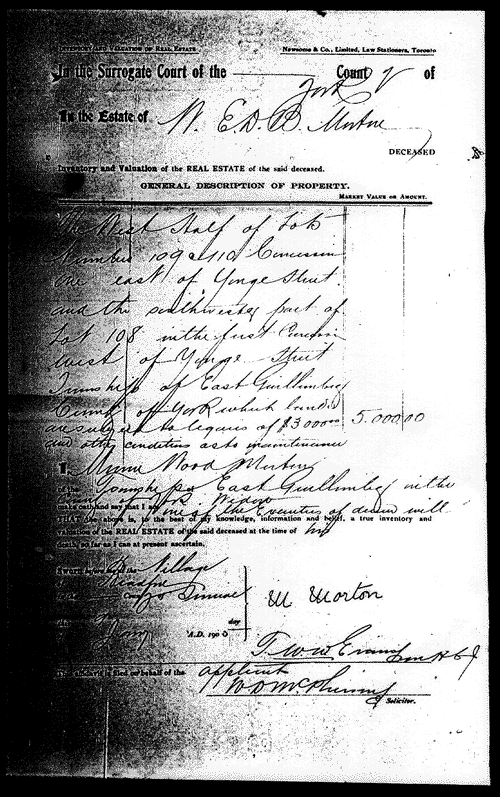 INVENTORY AND VALUATION OF REAL ESTATE.
Newsome & Co., Limited, Law Stationers, Toronto
In the Surrogate Court of the County of
York
In the Estate of W. E. D. B. Morton
DECEASED
Inventory and Valuation of the REAL ESTATE of the said deceased.
GENERAL DESCRIPTION OF PROPERTY.
MARKET VALUE OR AMOUNT.
The West Half of Lots
Number 109 & 110 Concession
one east of Yonge Street
and the southwesterly part of
Lot 108 in the first Concession
west of Yonge Street
Township of East Gwillimbury
County of York which lands
are subject to legacies of $3000.00 5.000 00
and other conditions as to maintenance
I Wood Morton
of the Township of East Gwillimbury in the
County of York Widow
make oath and say that I am one of the Executors of deceased will
THAT the above is, to the best of my knowledge, information and belief, a true inventory and
valuation of the REAL ESTATE of the said deceased at the time of his
death, so far as I can at present ascertain.
Sworn before me at the Village
of Bradford
County Simcoe
M Morton
day
A.D. 190
This affidavit is filed on behalf of the applicant
Solicitor.